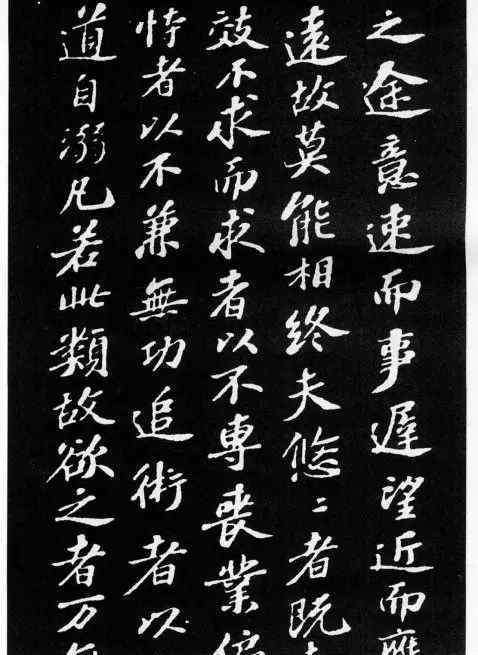 之途意速而事遲望近而應
遠故莫能相終夫悠〻者既
效不求而求者以不專喪業偏
恃者以不兼無功追術者以
道自溺凡若此類故欲之者万